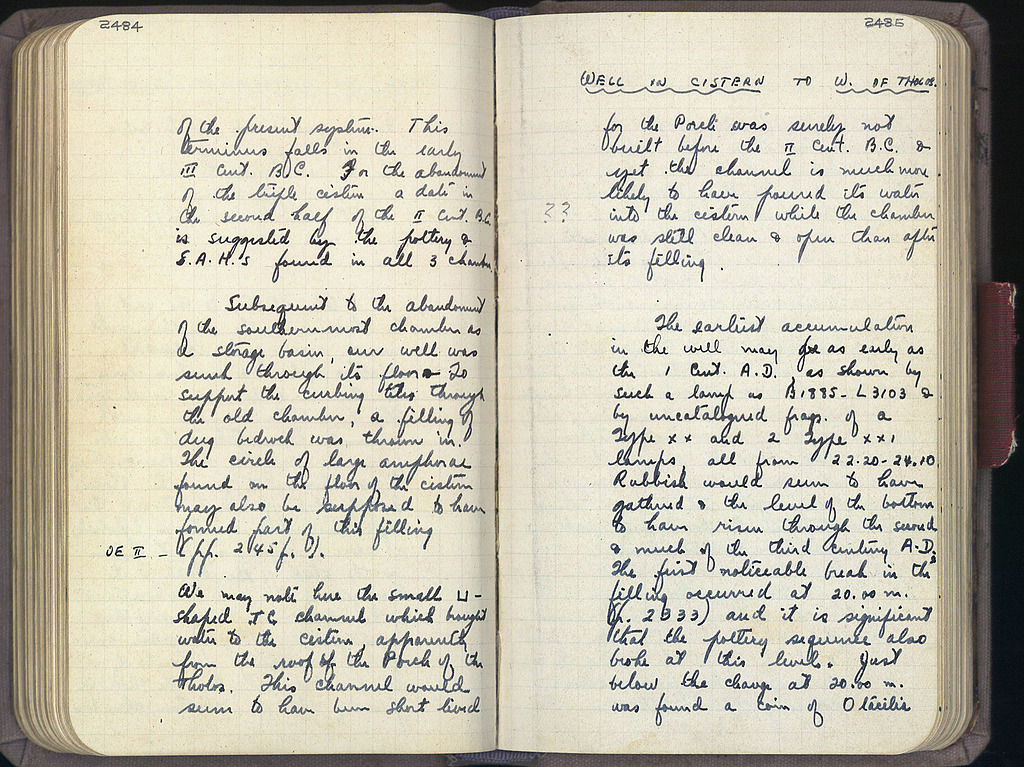 2484
of the present system. This
terminus falls in the early
III Cent. B.C. For the abandonment
of the triple cistern a date in
the second half of the II Cent. B.C.
is suggested by the pottery &
S.A.H.s found in all 3 chambers.
Subsequent to the abandonment
of the southernmost chamber as
a storage basin, our well was
sunk through its floor. To
support the curbing tiles through
the old chamber, a filling of
dug bedrock was thrown in.
The circle of large amphorae
found on the floor of the cistern
may also be supposed to have
formed part of this filling
OE II - (pp. 245 f.).
We may note here the small U-
shaped T.C. channel which brought
water to the cistern, apparently
from the roof of the Porch of the
Tholos. This channel would
seem to have been short lived
2485
WELL IN CISTERN TO W. OF THOLOS.
for the Porch was surely not
built before the II Cent. B.C. &
yet the channel is much more
likely to have poured its water
?? into the cistern while the chamber
was still clean & open than after
its filling.
The earliest accumulation
in the well may be as early as
the 1 Cent. A.D., as shown by
such a lamp as B1885 - L3103 &
by uncatalogued frags. of a
Type XX and 2 Type XXI
lamps all from 22.20-24.10
Rubbish would seem to have
gathered & the level of the bottom
to have risen through the second
& much of the third century A.D.
The first noticeable break in the
filling occurred at 20.00 m.
(p. 2333) and it is significant
that the pottery sequence also
broke at this level. Just
below the change at 20.00 m.
was found a coin of Otacilia